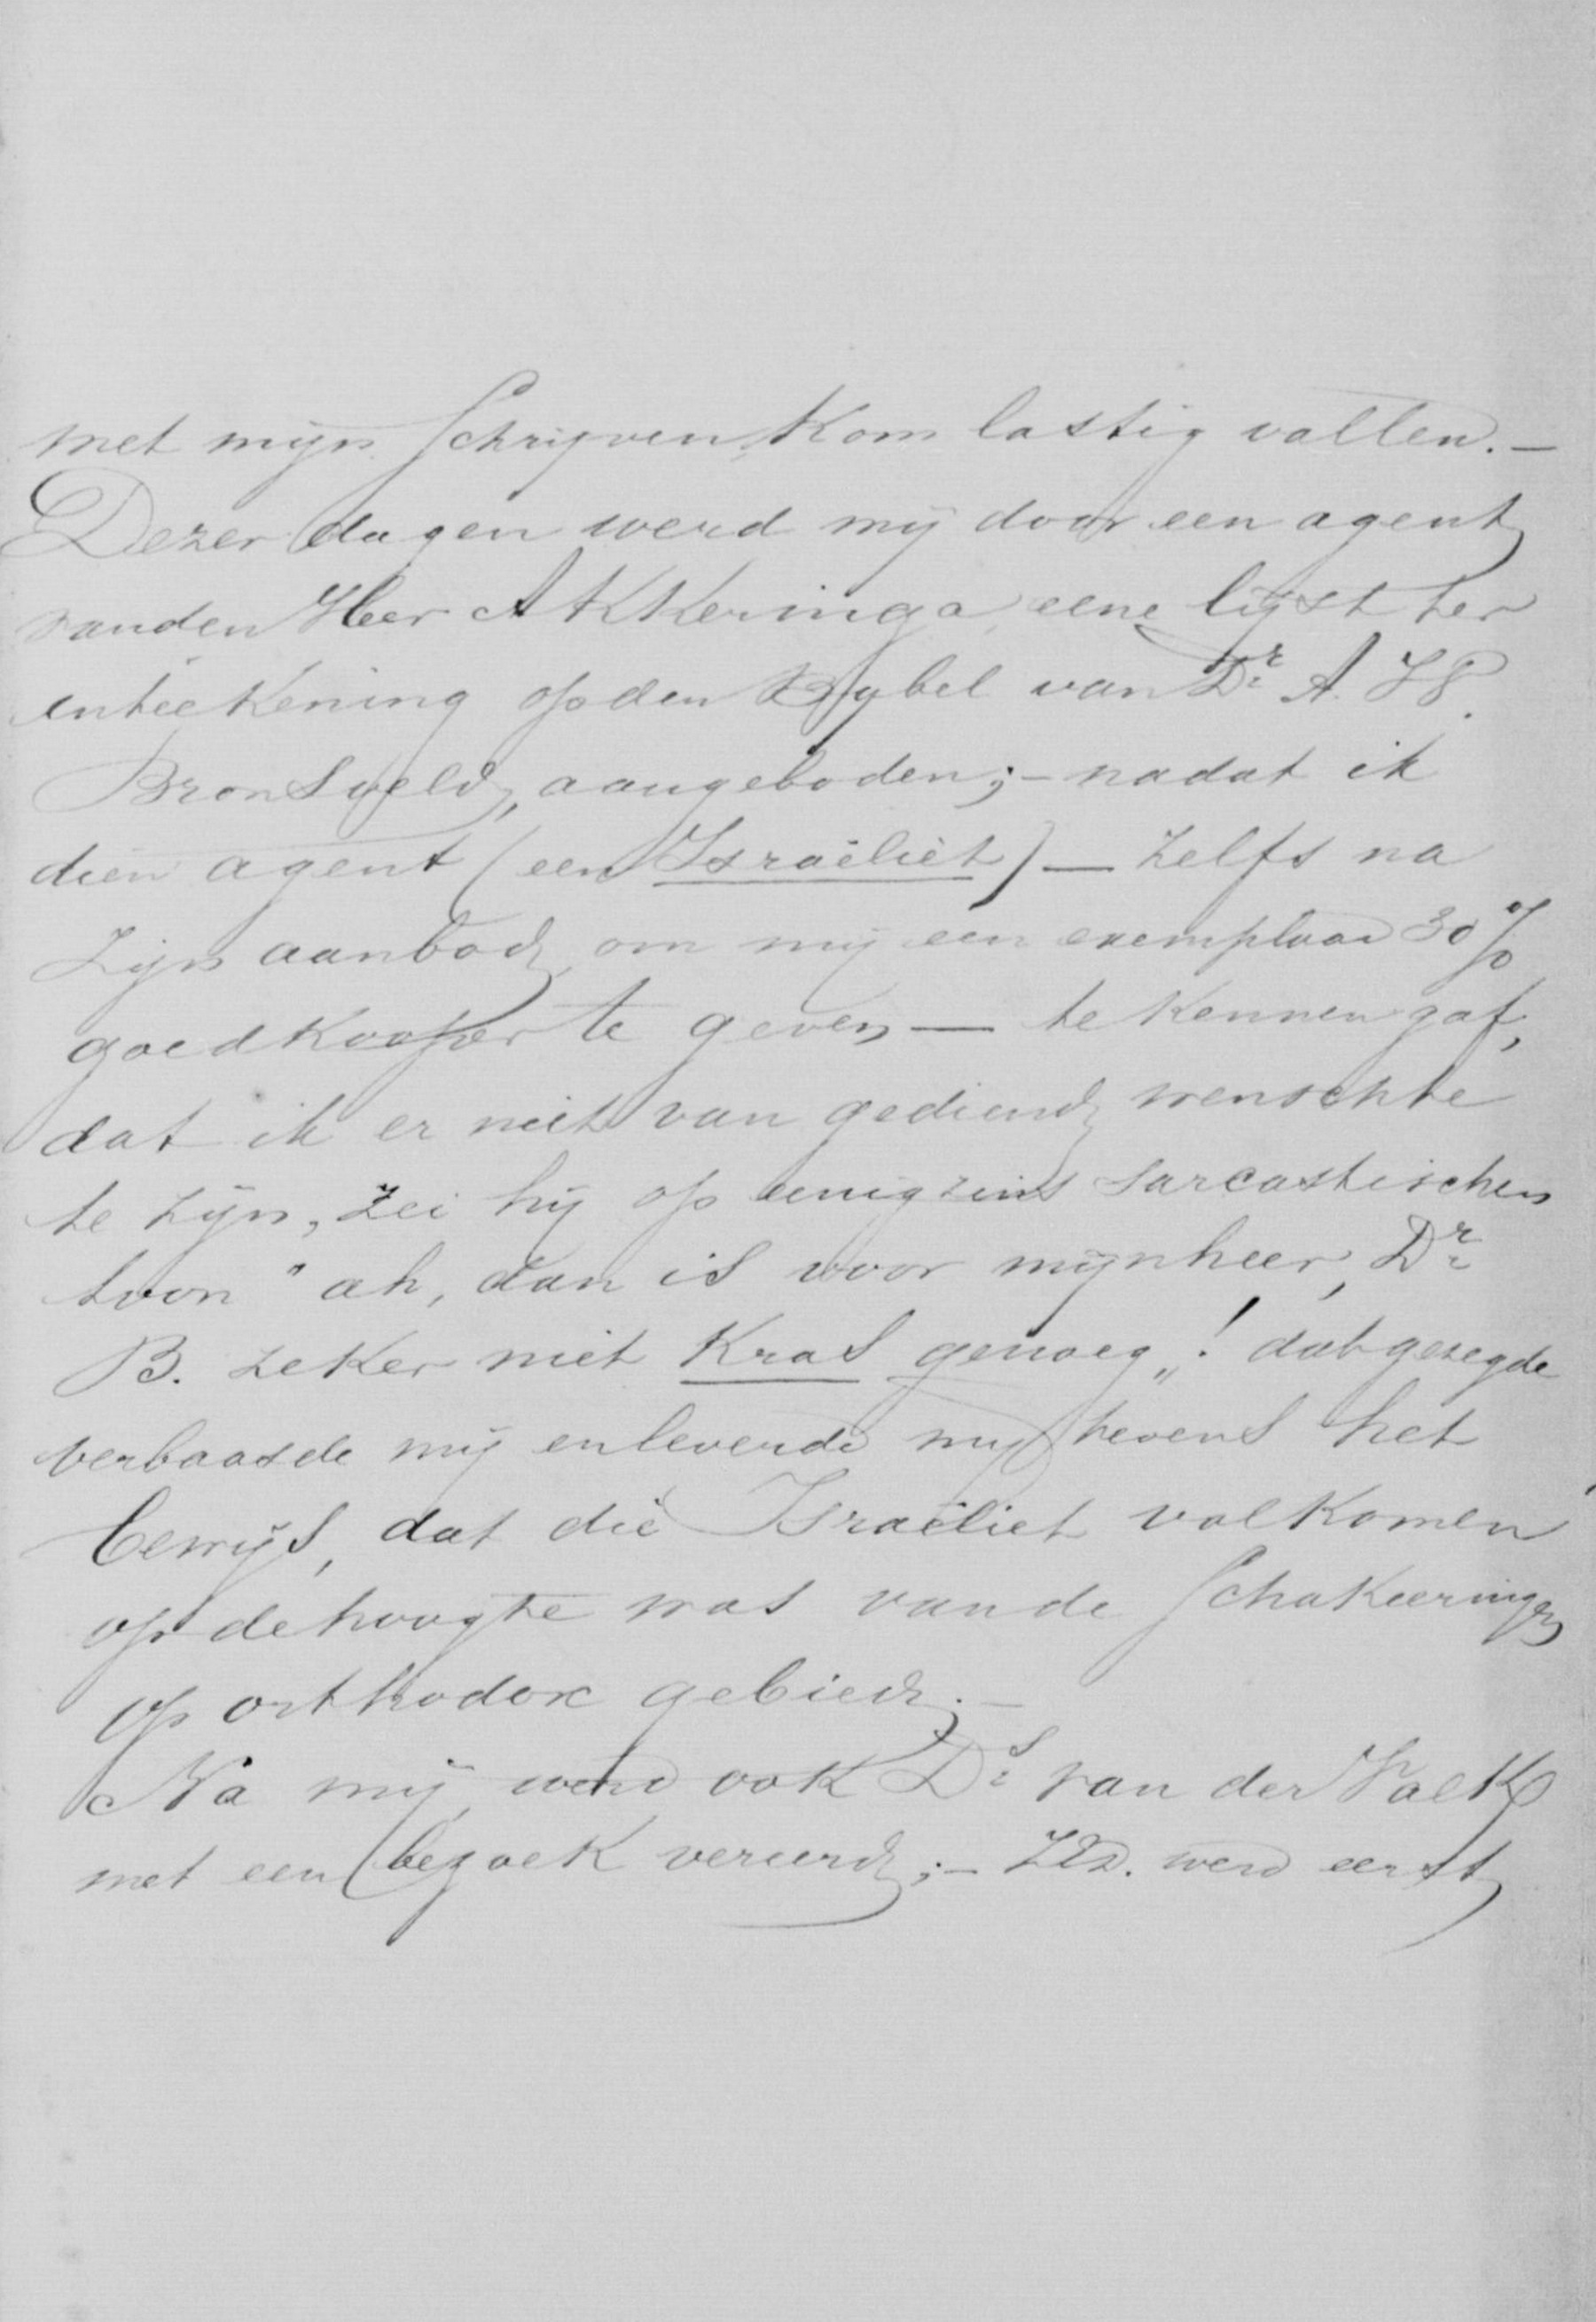 met mijn Schrijven Kom lastig vallen. —
Dezer dagen werd mij door een agent
van den Heer Akkeringa, eene lijst ter
inteekening op den Bijbel van Dr. A. W.
Bronsveld, aangeboden; – nadat ik
dien agent (een Israëliet) — zelfs na
zijn aanbod, om mij een exemplaar 30 %
goedkooper te geven — te kennen gaf,
dat ik er niet van gediend wenschte
te zijn, zei hij op eenigzins sarcastischen
toon " ah, dan is voor mijnheer, Dr.
B. zeker niet Kras genoeg „! dat gezegde
verbaasde mij en leverde mij tevens het
bewijs, dat die Israëliet volkomen
op de hoogte was van de Schakeeringen
op orthodox gebied. –
Na mij, werd ook Ds. van der Valk
met een bezoek vereerd; – ZEd. werd eerst